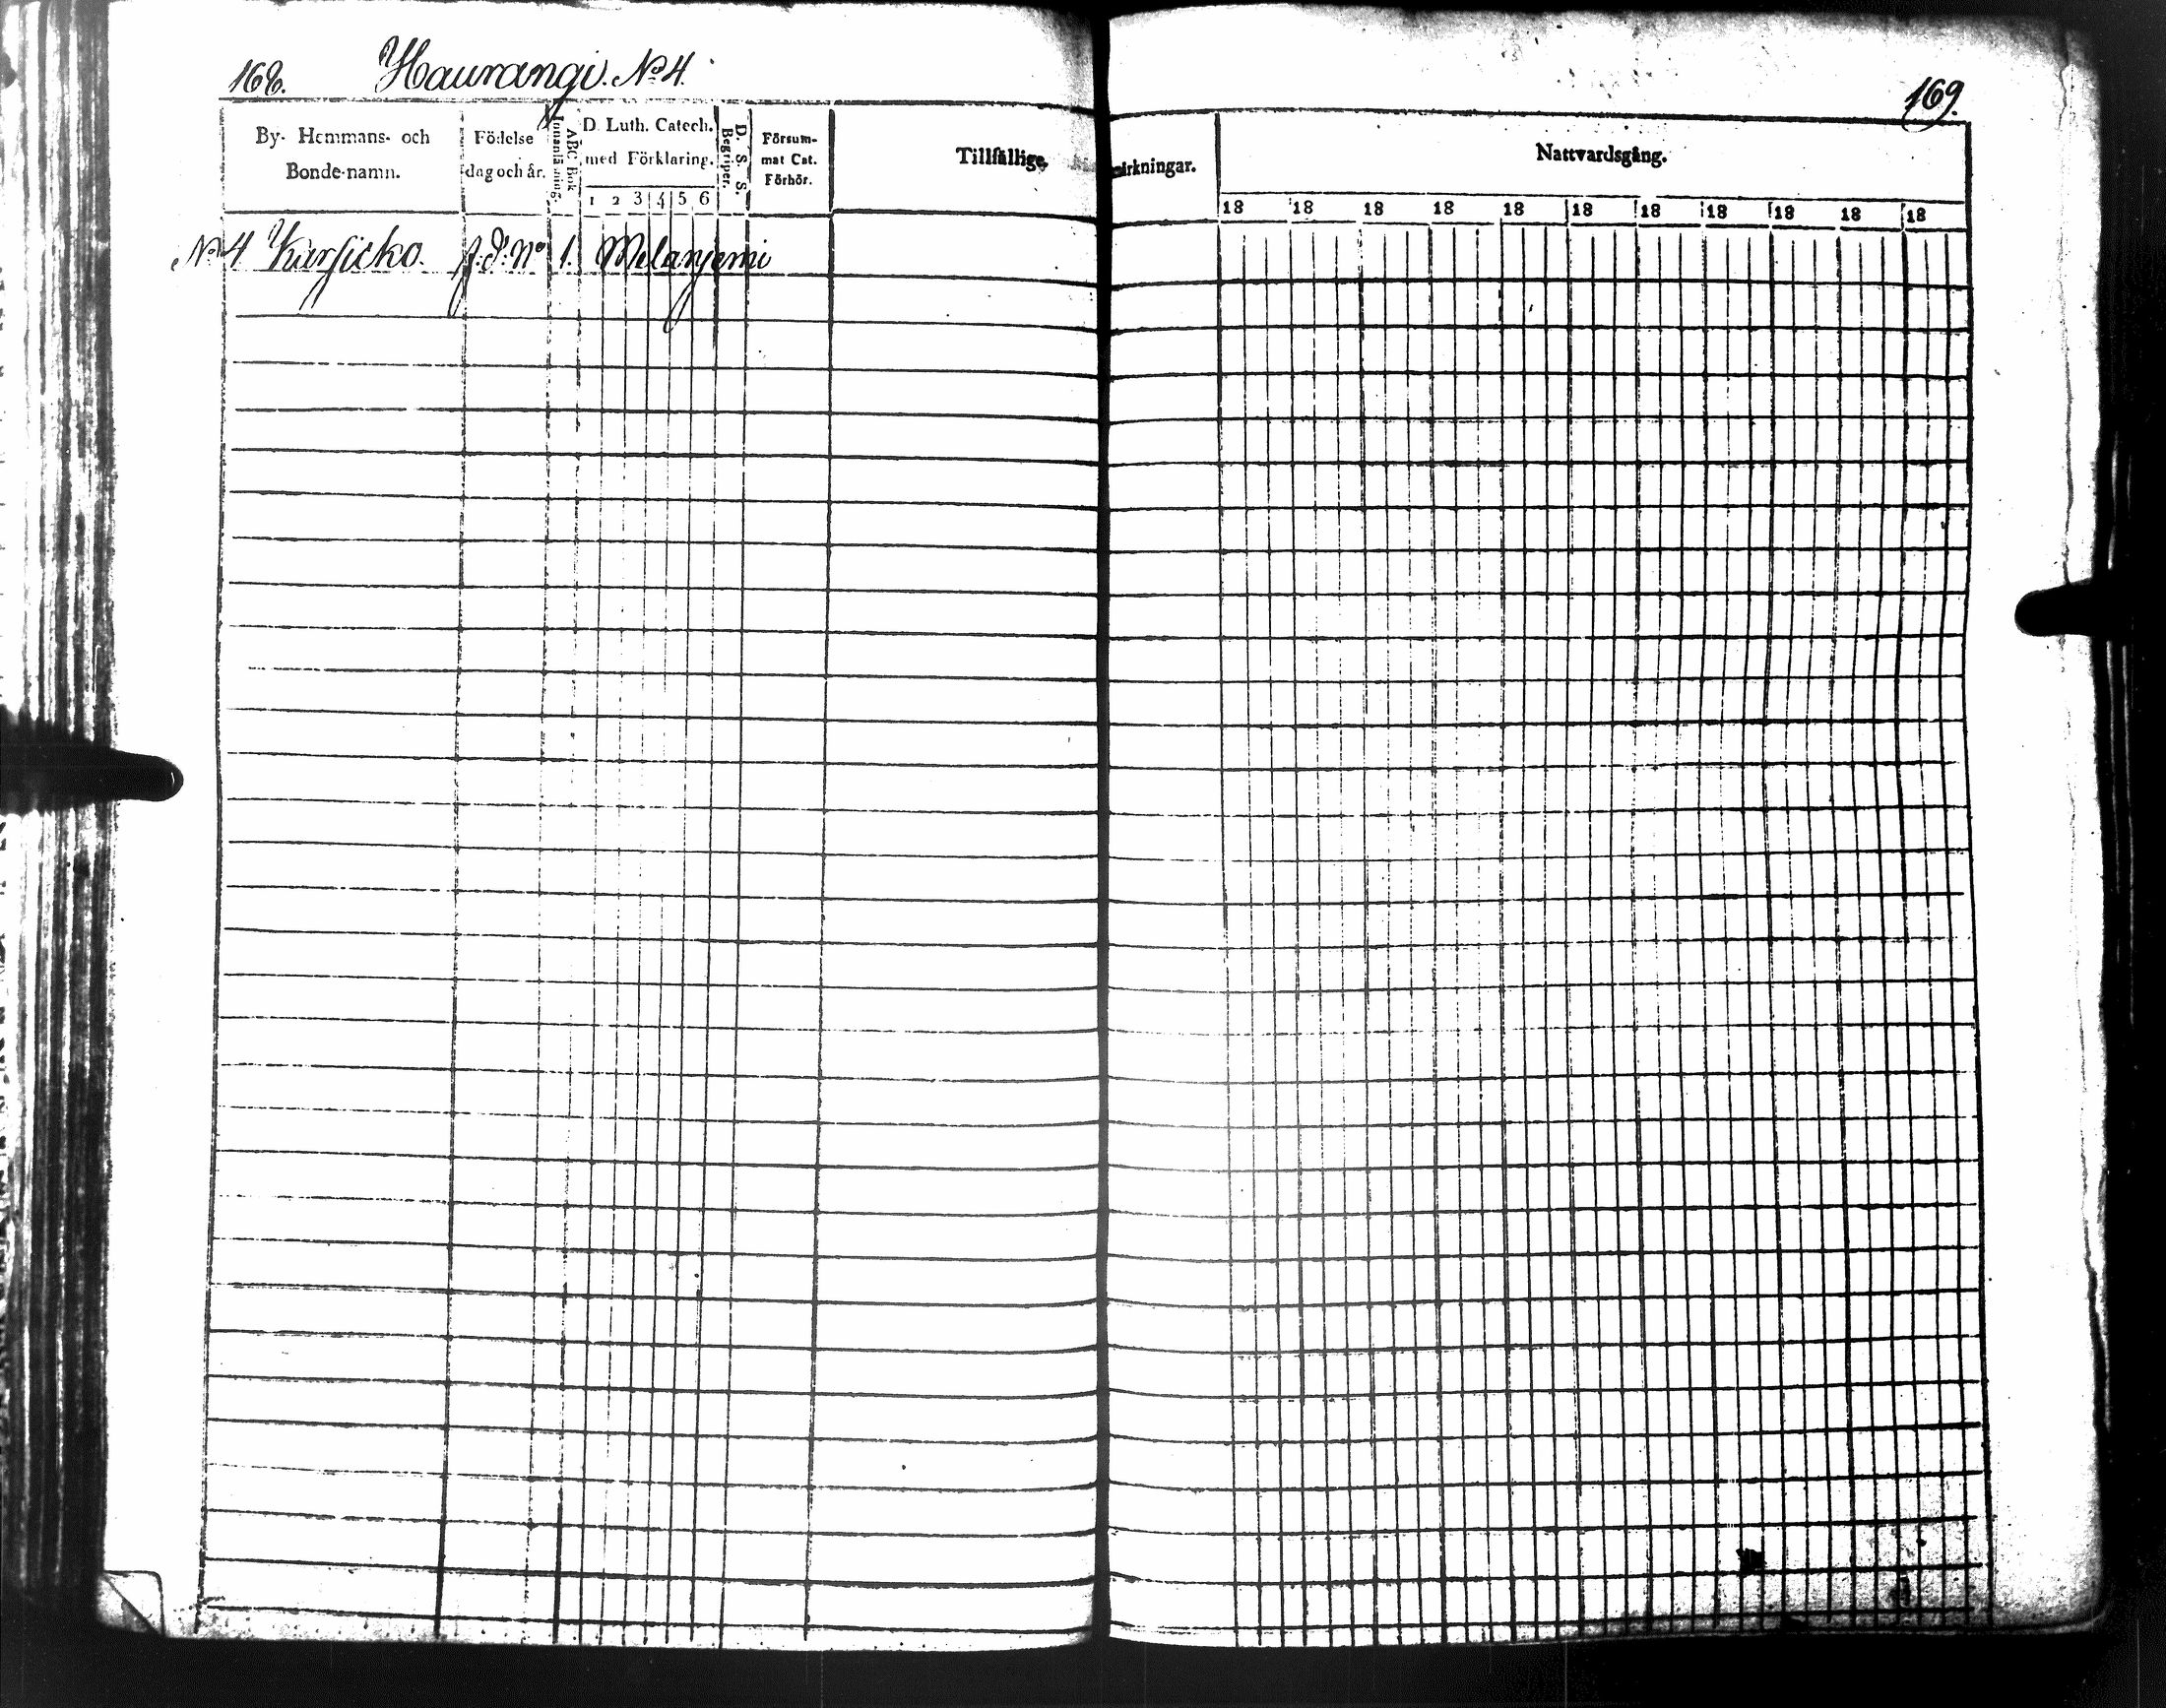 168. Haurangi. No 4.
169.
By- Hemmans- och Bonde-namn.
Födelse dag och år.
Innanläsning.
ABC Bok
D. Luth. Catech. med Förklaring.
1 2 3 4 5 6
D. S. S. Begriper.
Försummat Cat. Förhör.
Tillfällige
märkningar.
Nattvardsgång.
18 18 18 18 18 18 18 18 18 18 18
No 4 Karsicko. f.d. No 1. Melanjemi